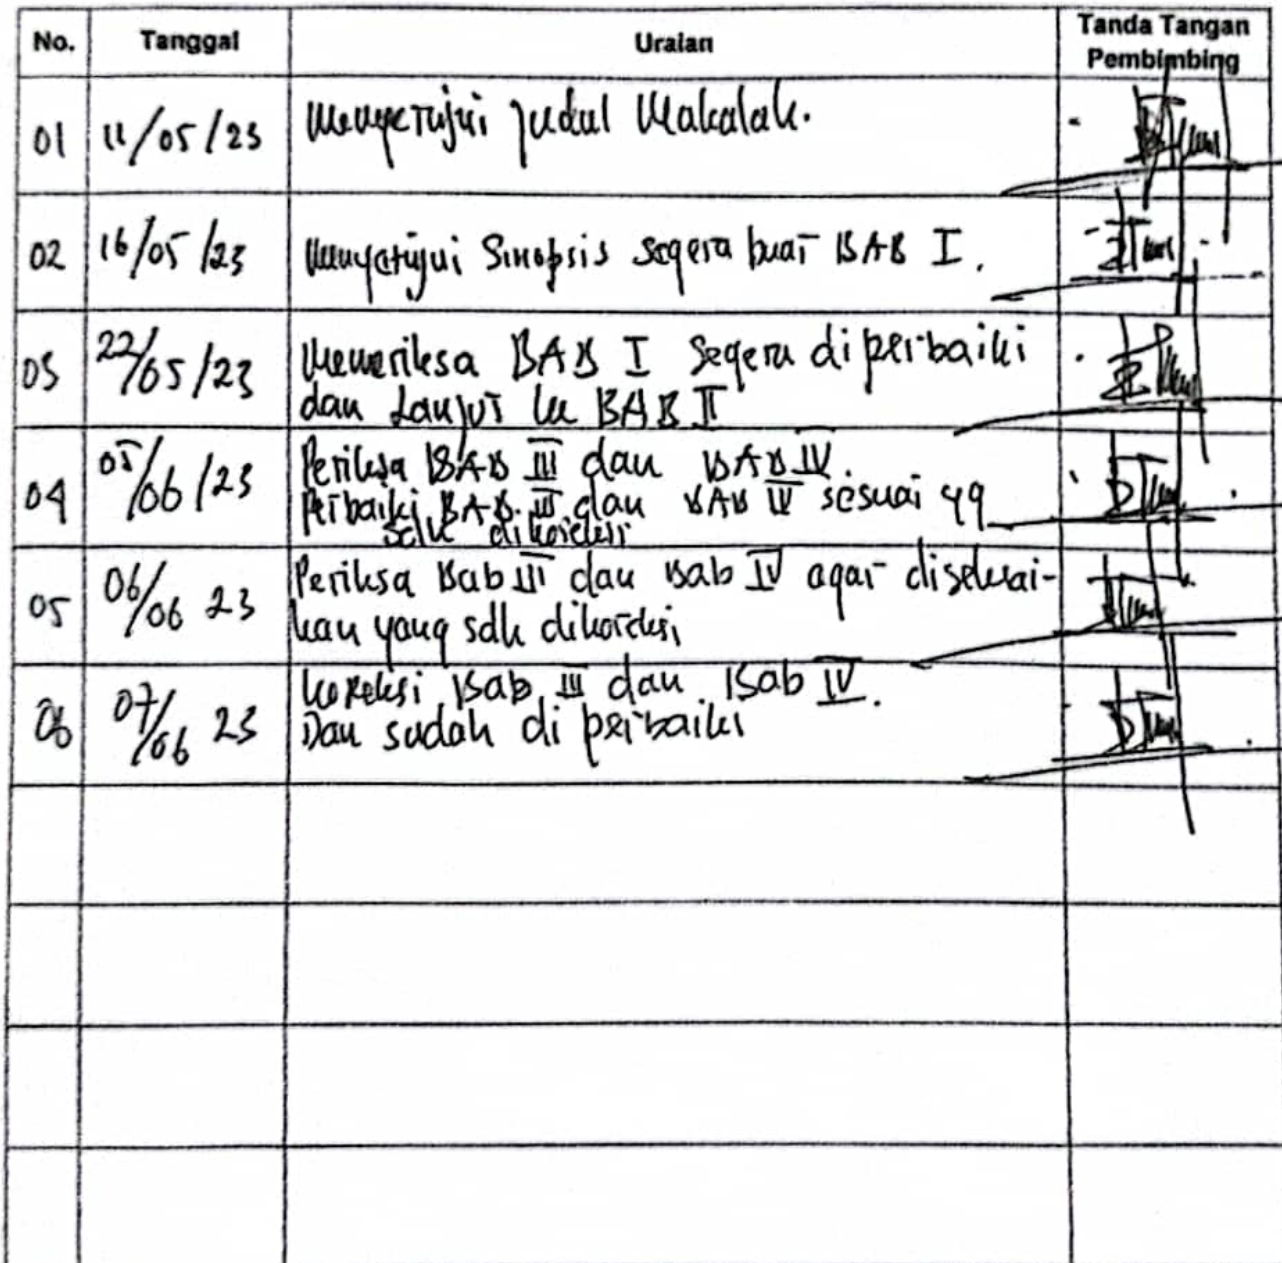 No. Tanggal Uraian Tanda Tangan
Pembimbing
01 11/05/23 Menyetujui judul Makalah.
02 16/05/23 Menyetujui Sinopsis segera buat BAB I.
03 22/05/23 Memeriksa BAB I Segera diperbaiki
dan Lanjut ke BAB II
04 05/06/23 Periksa BAB III dan BAB IV.
Perbaiki BAB III dan BAB IV sesuai yg
sdh dikoreksi
05 06/06 23 Periksa Bab III dan Bab IV agar diselesai-
kan yang sdh dikoreksi
06 07/06 23 Koreksi Bab III dan Bab IV.
Dan sudah di perbaiki